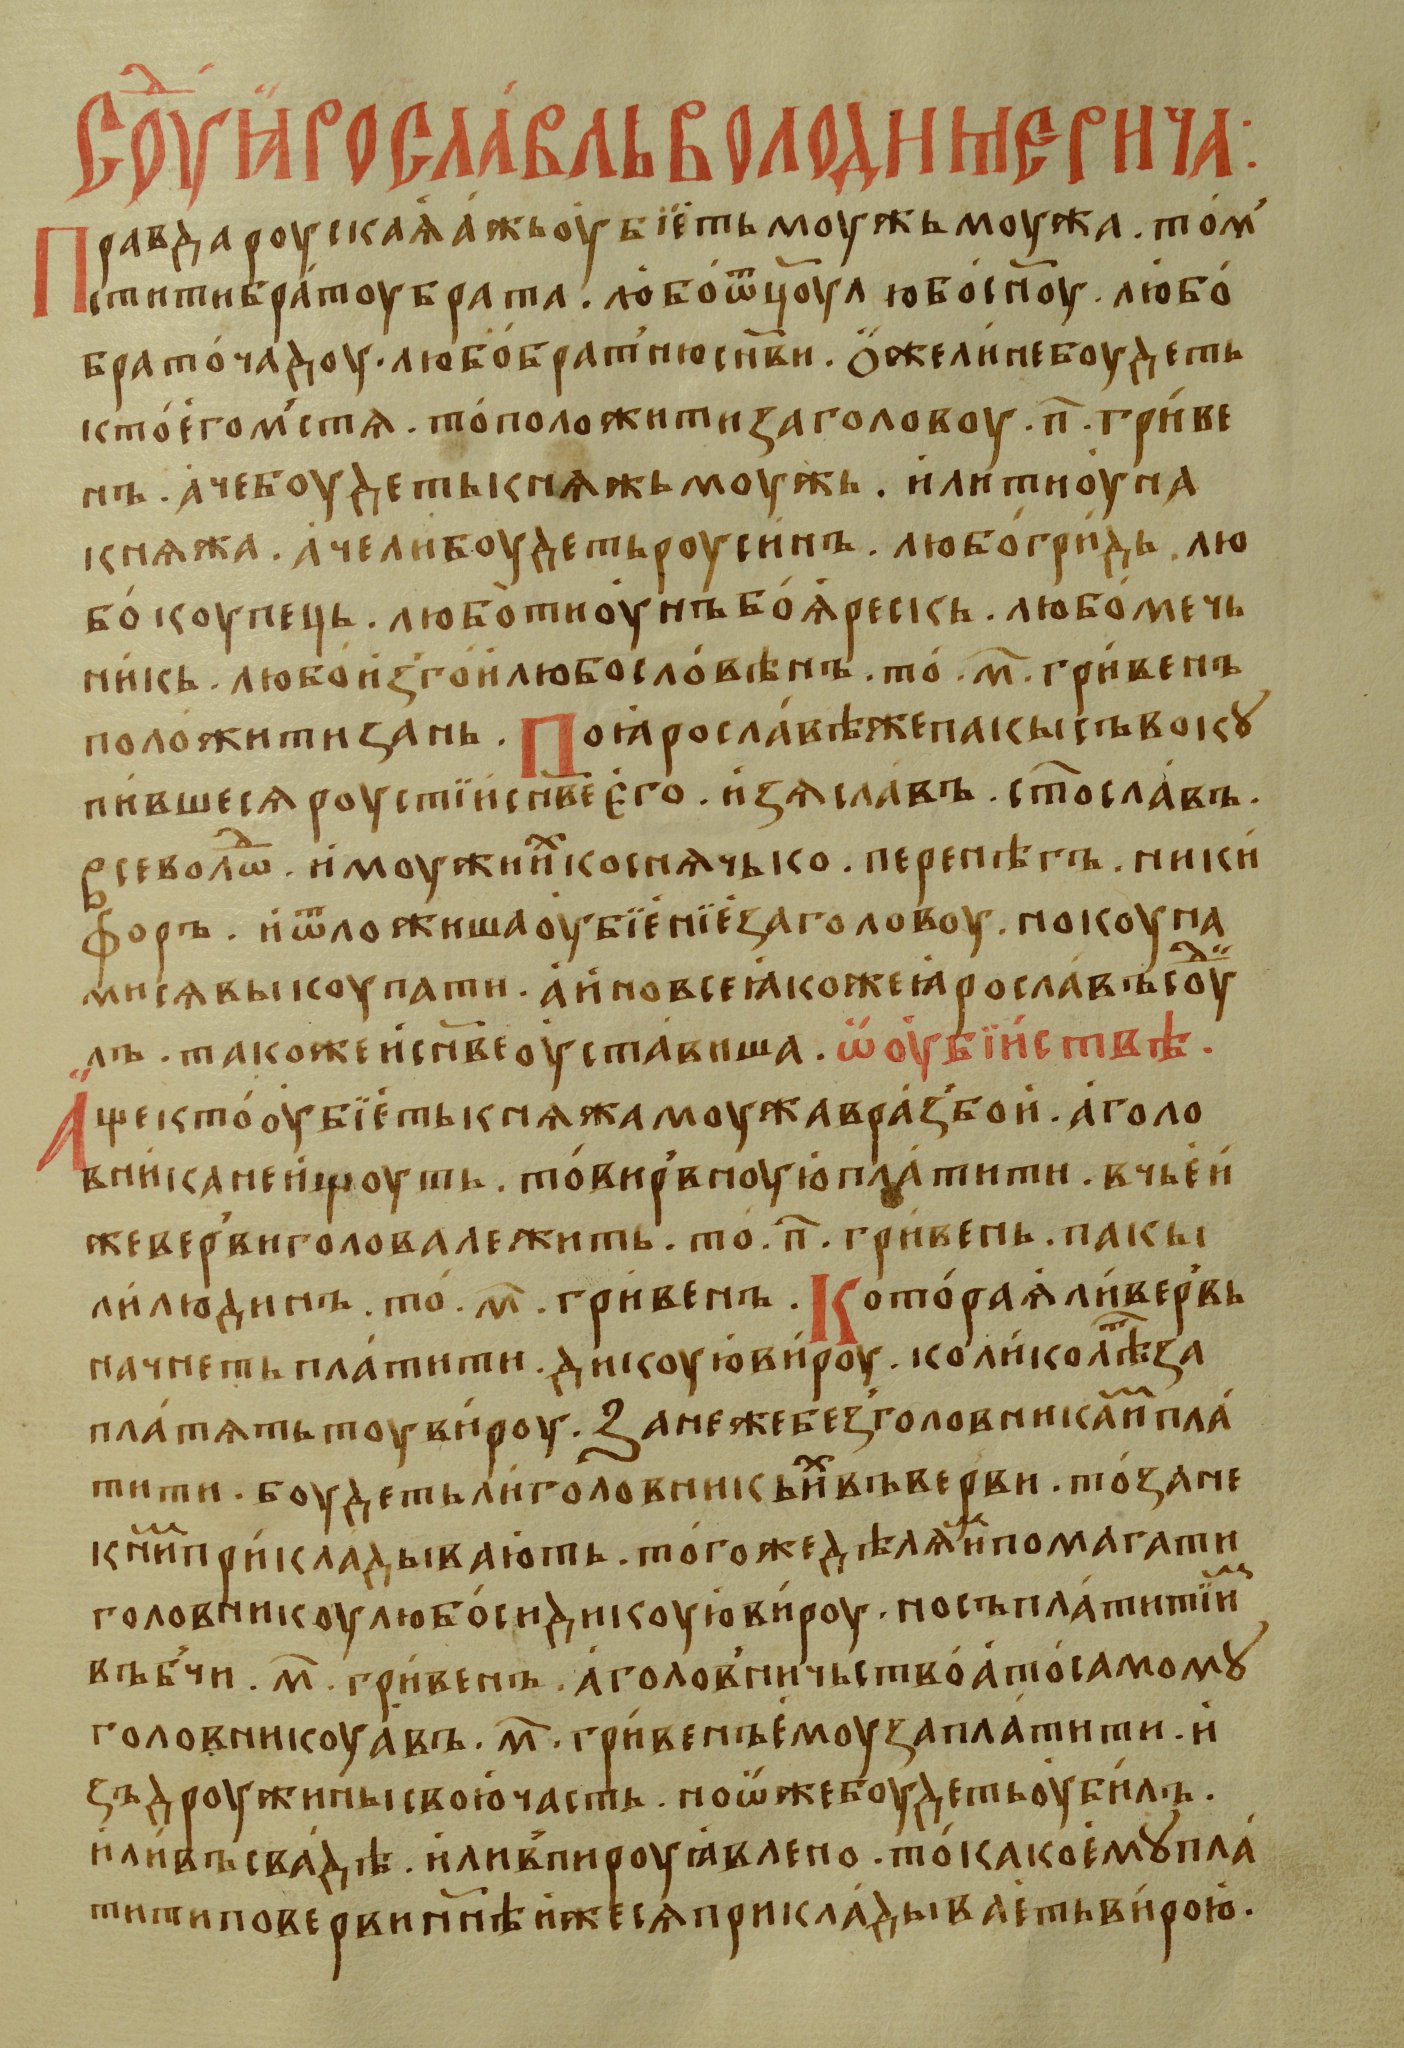 Сꙋⷣ ꙗрославль володимерича:
Правда роускаꙗ ажь оубїеть моужь моужа. то м
стити братоу брата. любо ѿцⷪ҇у любо сн҃оу. любо
браточадоу. любо братню сн҃ви. ожели не боудеть
кто его мьстѧ. то положити за головоу. п҃. гриве
нъ. аче боудеть кнѧжь моужь. или тиоуна
кнѧжа. аче ли боудеть роусинъ. любо гридь. лю
бо коупець. любо тиоунъ боꙗрескь. любо мечь
никь. любо изгои любо словѣнъ. то. м҃. гривенъ
положити за нь. По ꙗрославѣ же пакы съвокꙋ
пившесѧ роустїи сн҃ве его. изѧславъ. ст҃ославъ.
всеволѡⷣ. и моужи иⷯ коснѧчько. перенѣгъ. ники
форъ. и ѿложиша оубїенїе за головоу. но коуна
ми сѧ выкоупати. а ино все ꙗкоже ꙗрославъ соуⷣ
лъ. такоже и сн҃ве оуставиша. ѡ оубїиствѣ.
Аще кто оубїеть кнѧжа моужа в разбои. а голо
вника не ищоуть. то вирвноую платити. в чьеи
же верви голова лежить. то. п҃. гривень. пакы
ли людинъ. то. м҃. гривенъ. Котораꙗ ли вервь
начнеть платити. дикоую вироу. колико лѣⷮ за
платѧть тоу вироу. занеже без головника иⷨ пла
тити. боудеть ли головникь иⷯ въ верви. то зане
к ниⷨ прикладывають. того же дѣлѧ иⷨ помагати
головникоу любо си дикоую вироу. но съплатити иⷨ
въбчи. м҃. гривенъ. а головничьство а то самомꙋ
головникоу а въ. м҃. гривенъ емоу заплатити. и
зъ дроужины свою часть. но ѡже боудеть оубилъ.
или въ свадѣ. или в пироу ꙗвлено. то како емꙋ пла
тити по верви нн҃ѣ иже сѧ прикладываеть вирою.